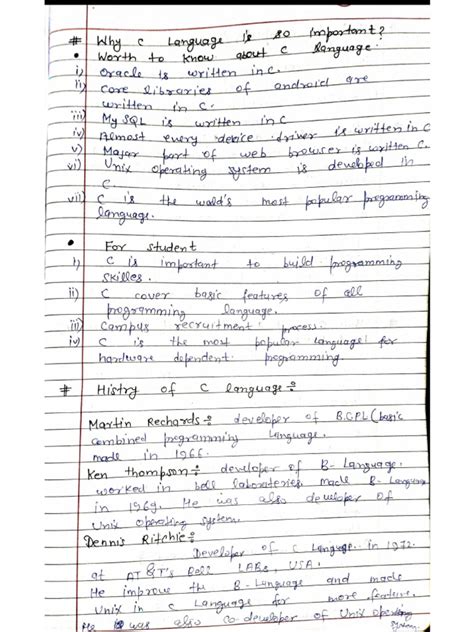 # Why C Language is so important?
• Worth to know about C language
i) Oracle is written in C.
ii) Core libraries of android are
written in C.
iii) MySQL is written in C
iv) Almost every device driver is written in C
v) Major part of web browser is written C.
vi) Unix operating system is developed in
C.
vii) C is the wald's most popular programming
language.
• For student
i) C is important to build programming
skilles.
ii) C cover basic features of all
programming language.
iii) Campus recruitment process.
iv) C is the most popular language for
hardware dependent programming.
# Histry of C language:
Martin Rechards: developer of B.C.P.L (basic
combined programming language.
made in 1966.
Ken Thompson: developer of B-Language.
worked in bell laboratories, made B-Language
in 1969. He was also developer of
Unix operating system.
Dennis Ritchie:
Developer of C Language. in 1972.
at AT&T's Bell LABs, USA.
He improve the B-Language and made
Unix in C Language for more feature.
He was also co-developer of Unix operting
system.